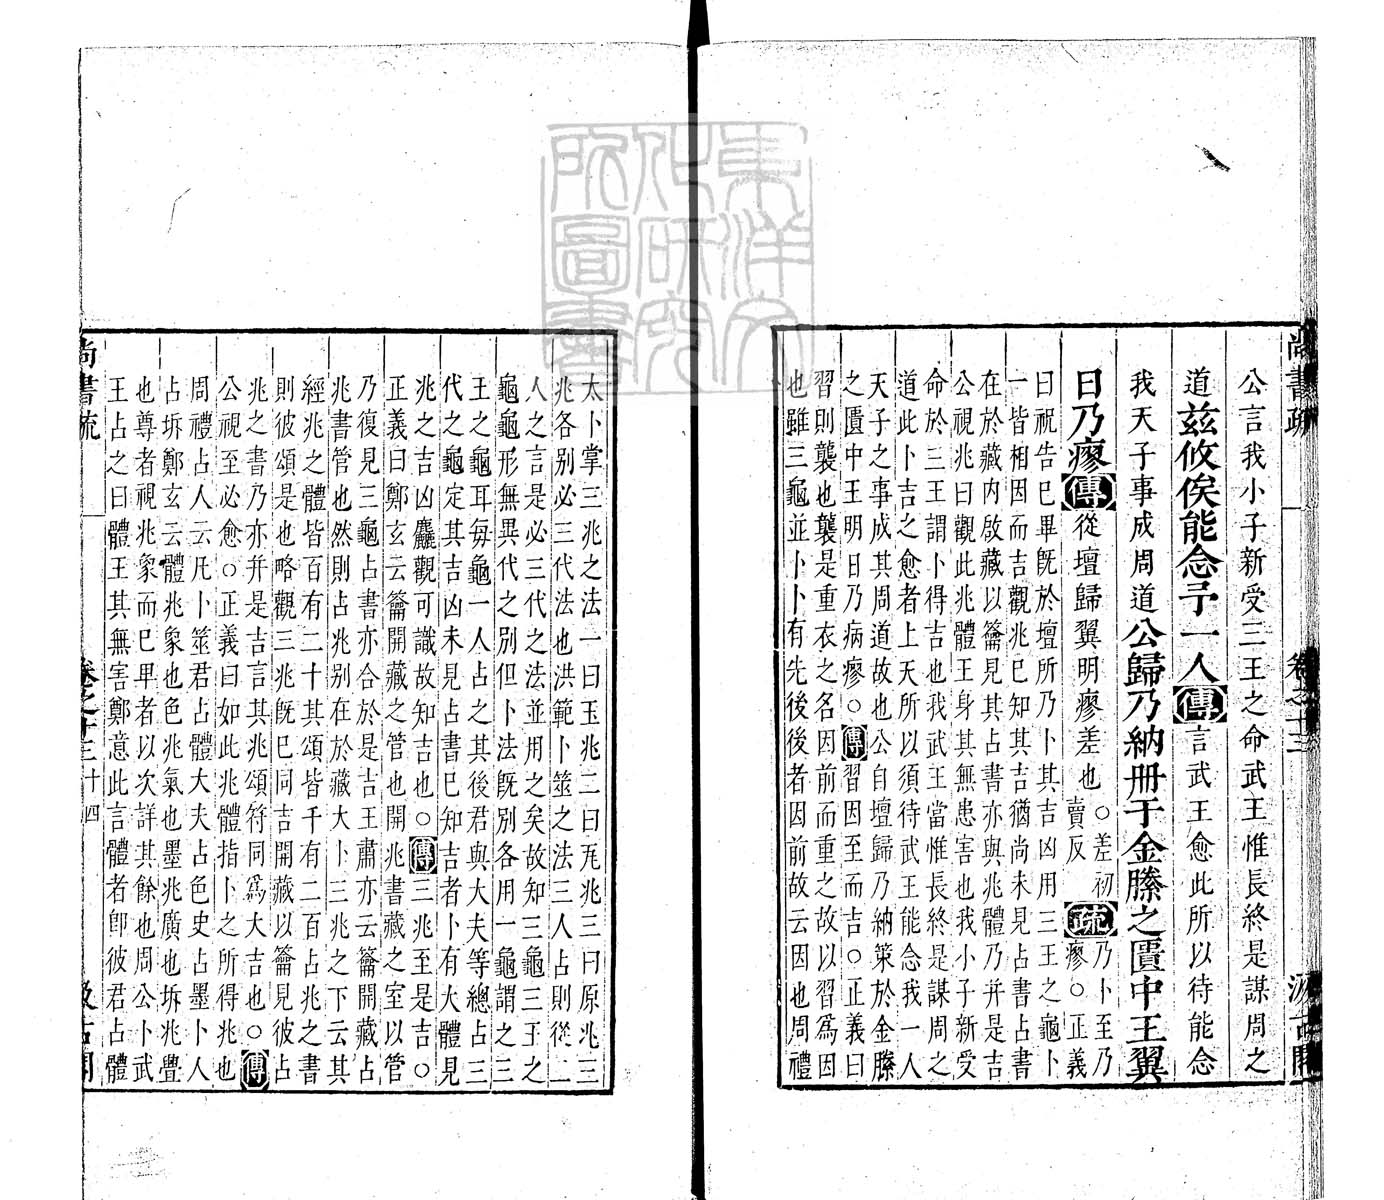 尚書疏 卷之十三 汲古閣
公言我小子新受三王之命武王惟長終是謀周之
道茲攸俟能念予一人傳言武王愈此所以待能念
我天子事成周道公歸乃納冊于金縢之匱中王翼
日乃瘳傳從壇歸翼明瘳差也○差初賣反疏乃卜至乃瘳○正義
曰祝告已畢既於壇所乃卜其吉凶用三王之龜卜
一皆相因而吉觀兆已知其吉猶尚未見占書占書
在於藏內啟藏以籥見其占書亦與兆體乃并是吉
公視兆曰觀此兆體王身其無患害也我小子新受
命於三王謂卜得吉也我武王當惟長終是謀周之
道此卜吉之愈者上天所以須待武王能念我一人
天子之事成其周道故也公自壇歸乃納策於金縢
之匱中王明日乃病瘳○傳習因至而吉○正義曰
習則襲也襲是重衣之名因前而重之故以習為因
也雖三龜並卜卜有先後後者因前故云因也周禮
太卜掌三兆之法一曰玉兆二曰瓦兆三曰原兆三
兆各別必三代法也洪範卜筮之法三人占則從二
人之言是必三代之法並用之矣故知三龜三王之
龜龜形無異代之別但卜法既別各用一龜謂之三
王之龜耳每龜一人占之其後君與大夫等總占三
代之龜定其吉凶未見占書已知吉者卜有大體見
兆之吉凶麤觀可識故知吉也○傳三兆至是吉○
正義曰鄭玄云籥開藏之管也開兆書藏之室以管
乃復見三龜占書亦合於是吉王肅亦云籥開藏占
兆書管也然則占兆別在於藏大卜三兆之下云其
經兆之體皆百有二十其頌皆千有二百占兆之書
則彼頌是也略觀三兆既已同吉開藏以籥見彼占
兆之書乃亦并是吉言其兆頌符同為大吉也○傳
公視至必愈○正義曰如此兆體指卜之所得兆也
周禮占人云凡卜筮君占體大夫占色史占墨卜人
占坼鄭玄云體兆象也色兆氣也墨兆廣也坼兆舋
也尊者視兆象而已卑者以次詳其餘也周公卜武
王占之曰體王其無害鄭意此言體者卽彼君占體
尚書疏 卷之十三 十四 汲古閣